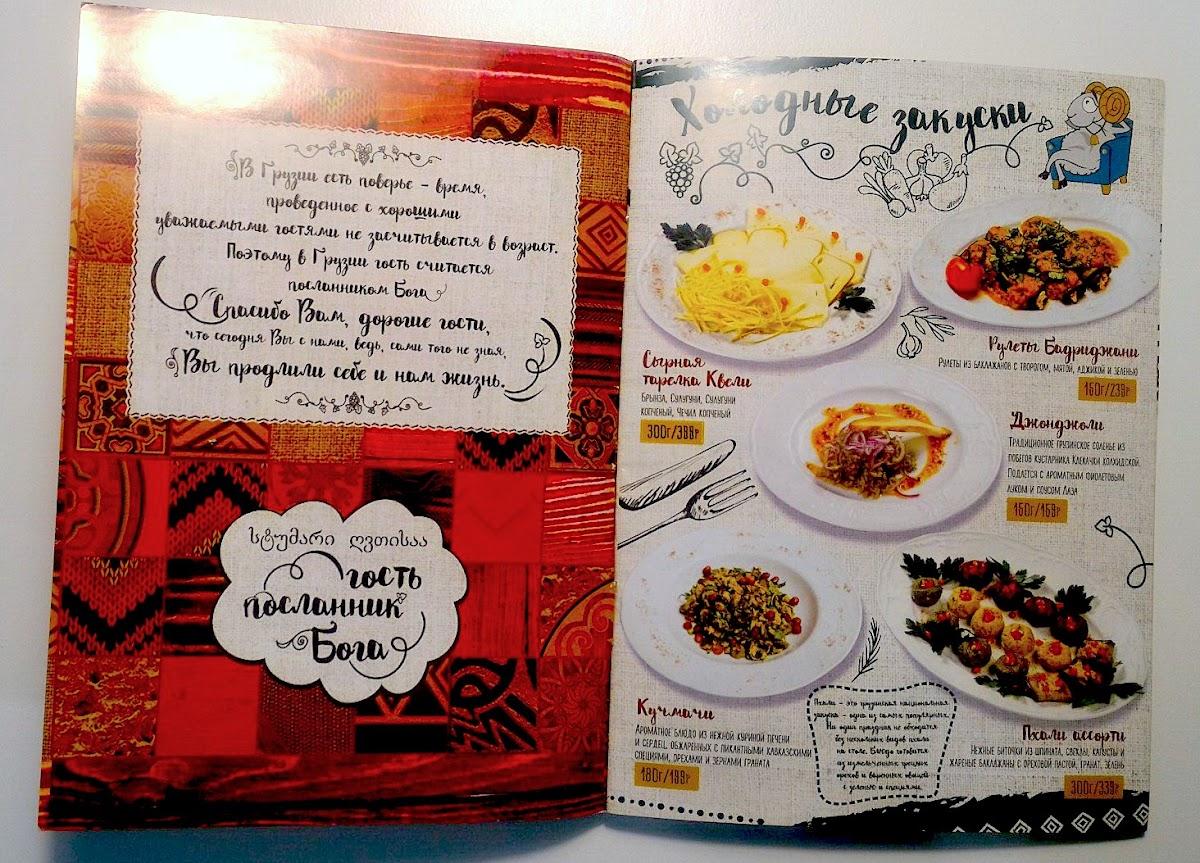 В Грузии есть поверье - время,
проведенное с хорошими
уважаемыми гостями не засчитывается в возраст.
Поэтому в Грузии гость считается
посланником Бога
Спасибо Вам, дорогие гости,
что сегодня Вы с нами, ведь, сами того не зная,
Вы продлили себе и нам жизнь.
სტუმარი ღვთისაა
гость
посланник
Бога
Холодные закуски
Сырная
тарелка Квели
Брынза, Сулугуни, Сулугуни
копченый, Чечил копченый
300г/388р
Рулеты Бадриджани
Рулеты из баклажанов с творогом, мятой, аджикой и зеленью
160г/239р
Джонджоли
Традиционное грузинское соленье из
побегов кустарника Клекачки колхидской.
Подается с ароматным фиолетовым
луком и соусом Лаза
150г/159р
Кучмачи
Ароматное блюдо из нежной куриной печени
и сердец, обжаренных с пикантными кавказскими
специями, орехами и зернами граната
180г/199р
Пхали - это грузинская национальная
закуска - одна из самых популярных.
Ни один праздник не обходится
без нескольких видов пхали
на столе. Блюдо готовится
из измельченных грецких
орехов и вареных овощей
с зеленью и специями.
Пхали ассорти
Нежные биточки из шпината, свеклы, капусты и
жареные баклажаны с ореховой пастой, гранат, зелень
300г/339р